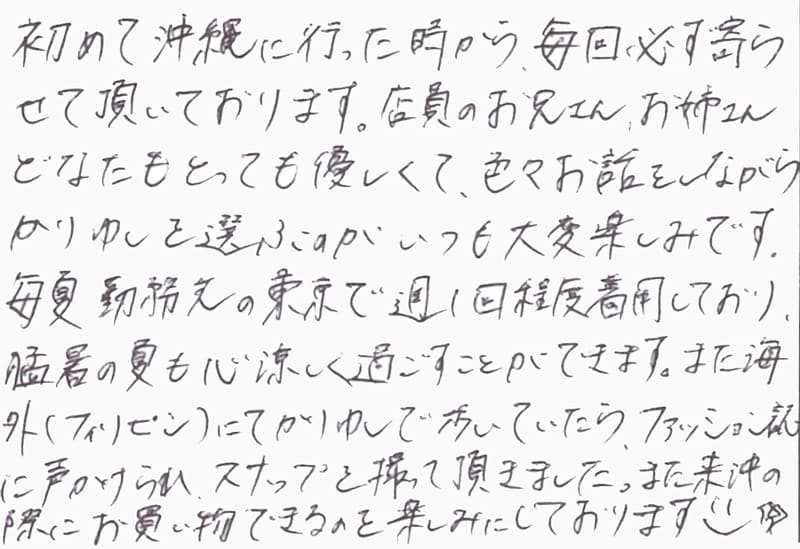 初めて沖縄に行った時から、毎回必ず寄ら
せて頂いております。店員のお兄さん、お姉さん
どなたもとっても優しくて、色々お話をしながら
かりゆしを選ぶのがいつも大変楽しみです。
毎夏勤務先の東京で週1回程度着用しており、
猛暑の夏も心涼しく過ごすことができます。また海
外(フィリピン)にてかりゆしで歩いていたら、ファッション誌
に声かけられ、スナップを撮って頂きました。また来沖の
際にお買い物できるのを楽しみにしております